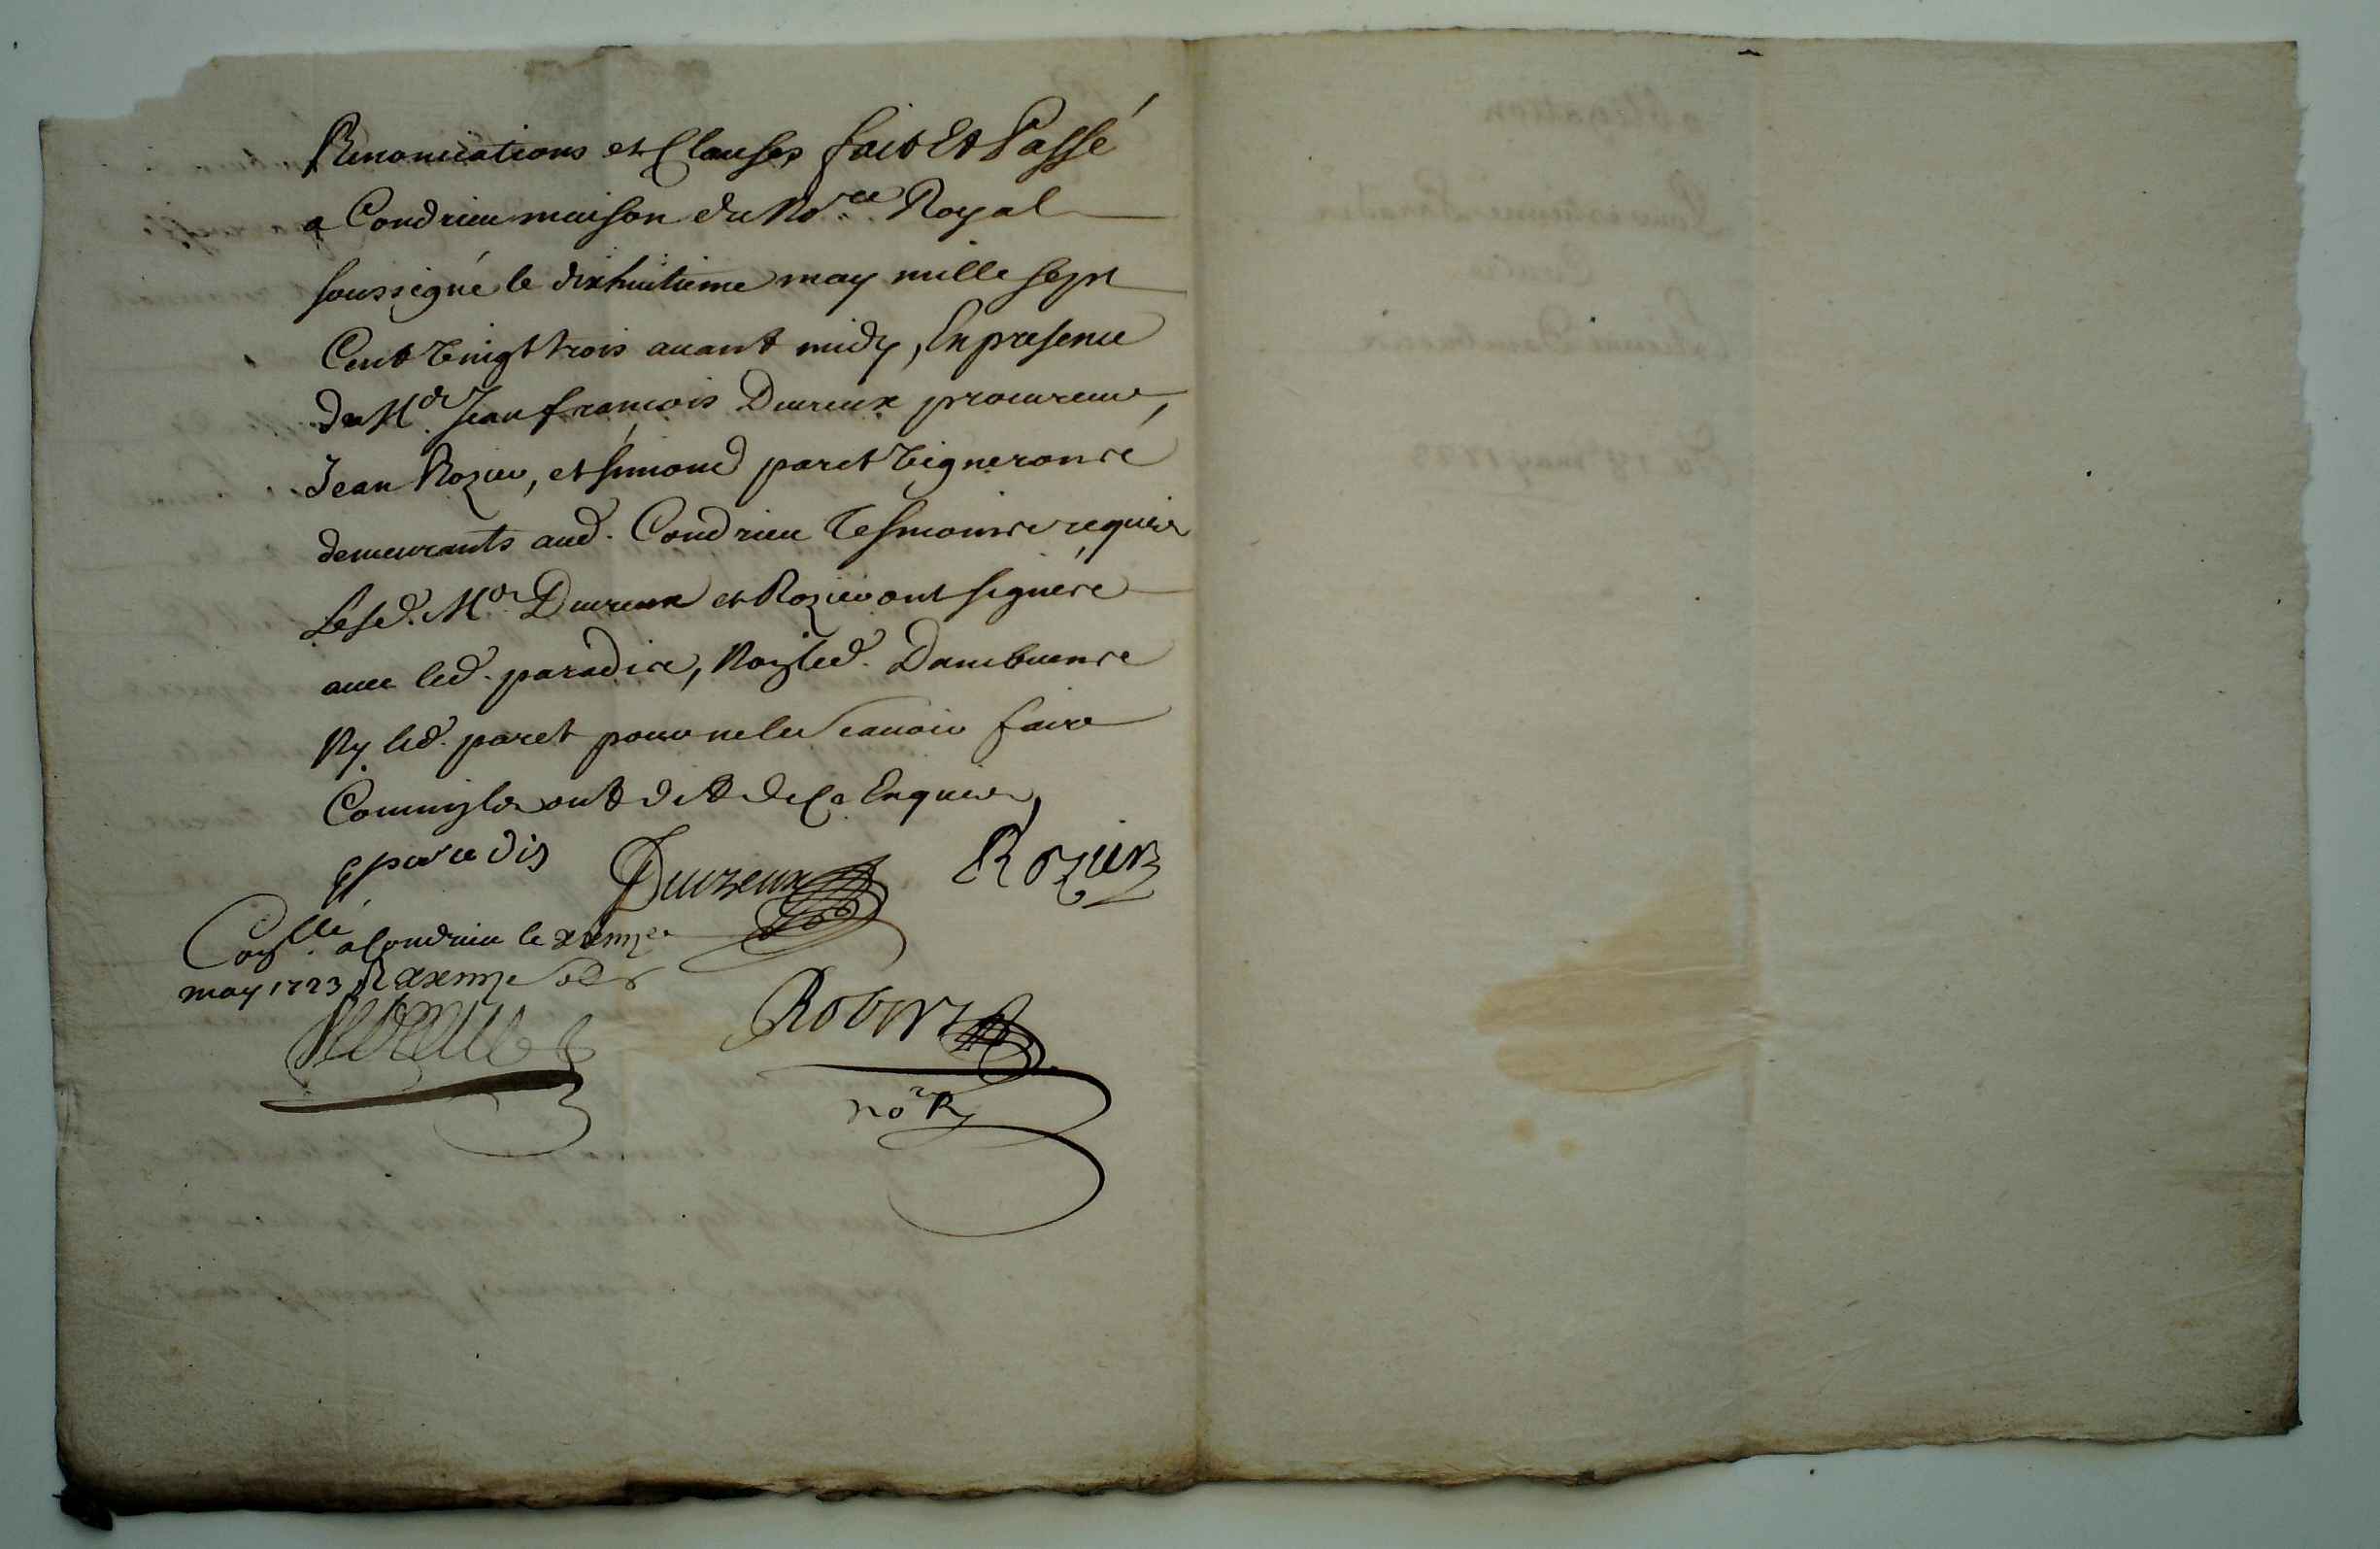 Renonciations et Clauses fait Et Passé
a Condrieu maison du No.re Royal
soussigné le dixhuitieme may mille sept
Cent vingt trois auant midy, En presence
de Me. Jean françois Dureux procureur,
Jean Rozier, et simond paret vignerons
demeurants aud. Condrieu tesmoins requis
Lesd. Me Dureux et Rozier ont signés
auec led. paradis, Non led.
Ny led. paret pour ne le scauoir faire
Comm'ils ont dit de ce Enquis,
paradis Duureux Rozier
a Condrieu le
may 1723 R
Robert
no.re R